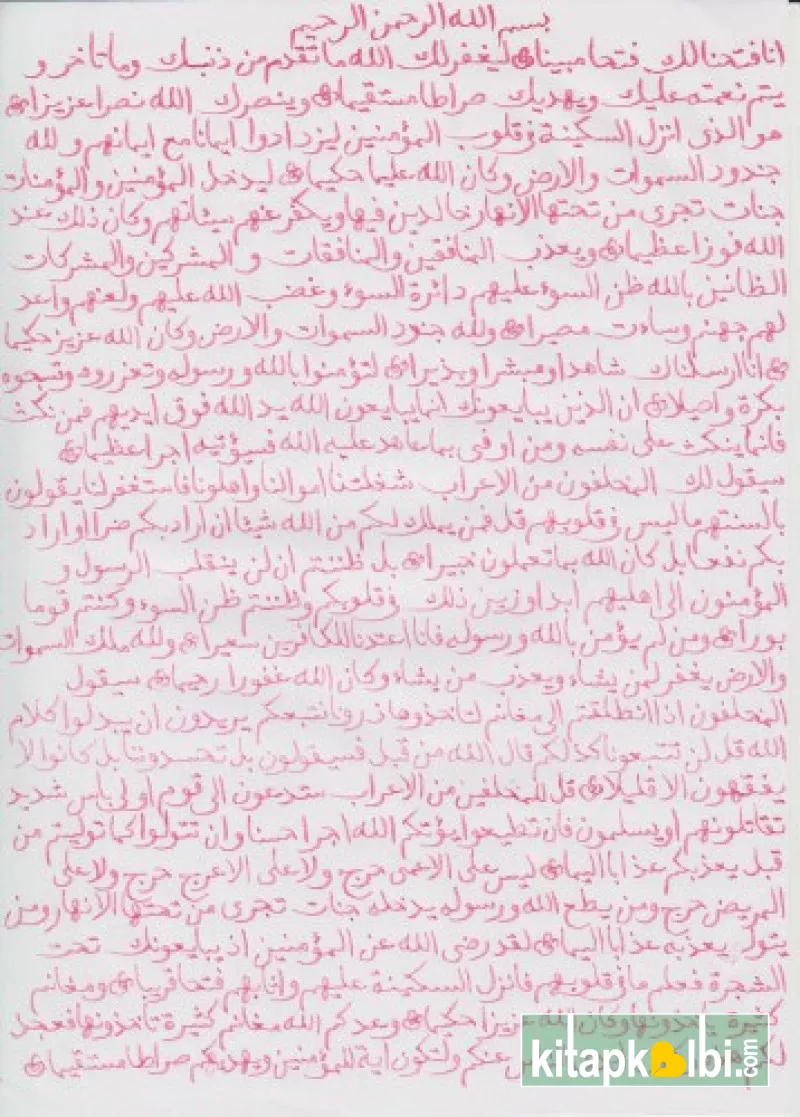 بسم الله الرحمن الرحيم
انا فتحنا لك فتحا مبينا ليغفر لك الله ما تقدم من ذنبك وما تأخر و
يتم نعمته عليك ويهديك صراطا مستقيما وينصرك الله نصرا عزيزا
هو الذى انزل السكينة فى قلوب المؤمنين ليزدادوا ايمانا مع ايمانهم ولله
جندود السموات والارض وكان الله عليما حكيما ليدخل المؤمنين والمؤمنات
جنات تجرى من تحتها الانهار خالدين فيها ويكفر عنهم سيئاتهم وكان ذلك عند
الله فوزا عظيما ويعذب المنافقين والمنافقات والمشركين والمشركات
الظانين بالله ظن السوء عليهم دائرة السوء وغضب الله عليهم ولعنهم واعد
لهم جهنم وساءت مصيرا ولله جنود السموات والارض وكان الله عزيز حكيما
انا ارسلناك شاهدا ومبشرا ونذيرا لتؤمنوا بالله ورسوله وتعزروه وتسبحوه
بكرة واصيلا ان الذين يبايعونك انما يبايعون الله يد الله فوق ايديهم فمن نكث
فانما ينكث على نفسه ومن اوفى بما عاهد عليه الله فسيؤتيه اجرا عظيما
سيقول لك المخلفون من الاعراب شغلتنا اموالنا واهلونا فاستغفر لنا يقولون
بالسنتهم ما ليس فى قلوبهم قل فمن يملك لكم من الله شيئا ان اراد بكم ضرا او اراد
بكم نفعا بل كان الله بما تعملون خبيرا بل ظننتم ان لن ينقلب الرسول و
المؤمنون الى اهليهم ابدا وزين ذلك فى قلوبكم وظننتم ظن السوء وكنتم قوما
بورا ومن لم يؤمن بالله ورسوله فانا اعتدنا للكافرين سعيرا ولله ملك السموات
والارض يغفر لمن يشاء ويعذب من يشاء وكان الله غفورا رحيما سيقول
المخلفون اذا انطلقتم الى مغانم لتأخذوها ذرونا نتبعكم يريدون ان يبدلوا كلام
الله قل لن تتبعونا كذلكم قال الله من قبل فسيقولون بل تحسدوننا بل كانوا لا
يفقهون الا قليلا قل للمخلفين من الاعراب ستدعون الى قوم اولى باس شديد
تقاتلونهم او يسلمون فان تطيعوا يؤتكم الله اجرا حسنا وان تتولوا كما توليتم من
قبل يعذبكم عذابا اليما ليس على الاعمى حرج ولا على الاعرج حرج ولا على
المريض حرج ومن يطع الله ورسوله يدخله جنات تجرى من تحتها الانهار ومن
يتول يعذبه عذابا اليما لقد رضى الله عن المؤمنين اذ يبايعونك تحت
الشجرة فعلم ما فى قلوبهم فانزل السكينة عليهم واثابهم فتحا قريبا ومغانم
كثيرة يأخذونها وكان الله عزيزا حكيما وعدكم الله مغانم كثيرة تأخذونها فعجل
لكم عنكم ولتكون اية للمؤمنين ويهديكم صراطا مستقيما
kitapkalbi.com